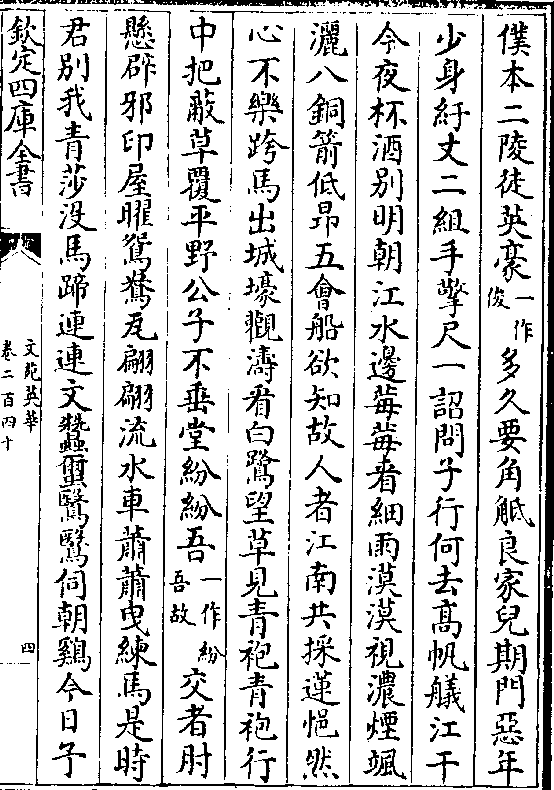 僕本二陵徒英豪一作俊多久要角觝良家兒期門惡年
少身紆丈二組手擎尺一詔問子行何去髙帆艤江干
今夜杯酒别明朝江水邊莓莓看細雨漠漠視濃煙颯
灑八銅箭低昻五會船欲知故人者江南共採蓮悒然
心不樂跨馬出城壕觀濤看白鷺望草見青袍青袍行
中把蔽草覆平野公子不垂堂紛紛吾一作紛吾故交者肘
懸辟邪印屋曜鴛鴦瓦翩翩流水車蕭蕭曳練馬是時
君别我青莎没馬蹄連連文蠶壐鷖鷖伺朝鷄今日子
欽定四庫全書
文苑英華
卷二百四十
四